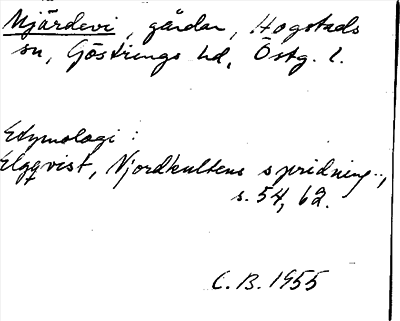 Mjärdevi, gårdar, Hogstads
sn, Göstrings hd, Östg. l.
Etymologi:
Elgqvist, Njordkultens spridning..,
s. 54, 62.
C.B. 1955